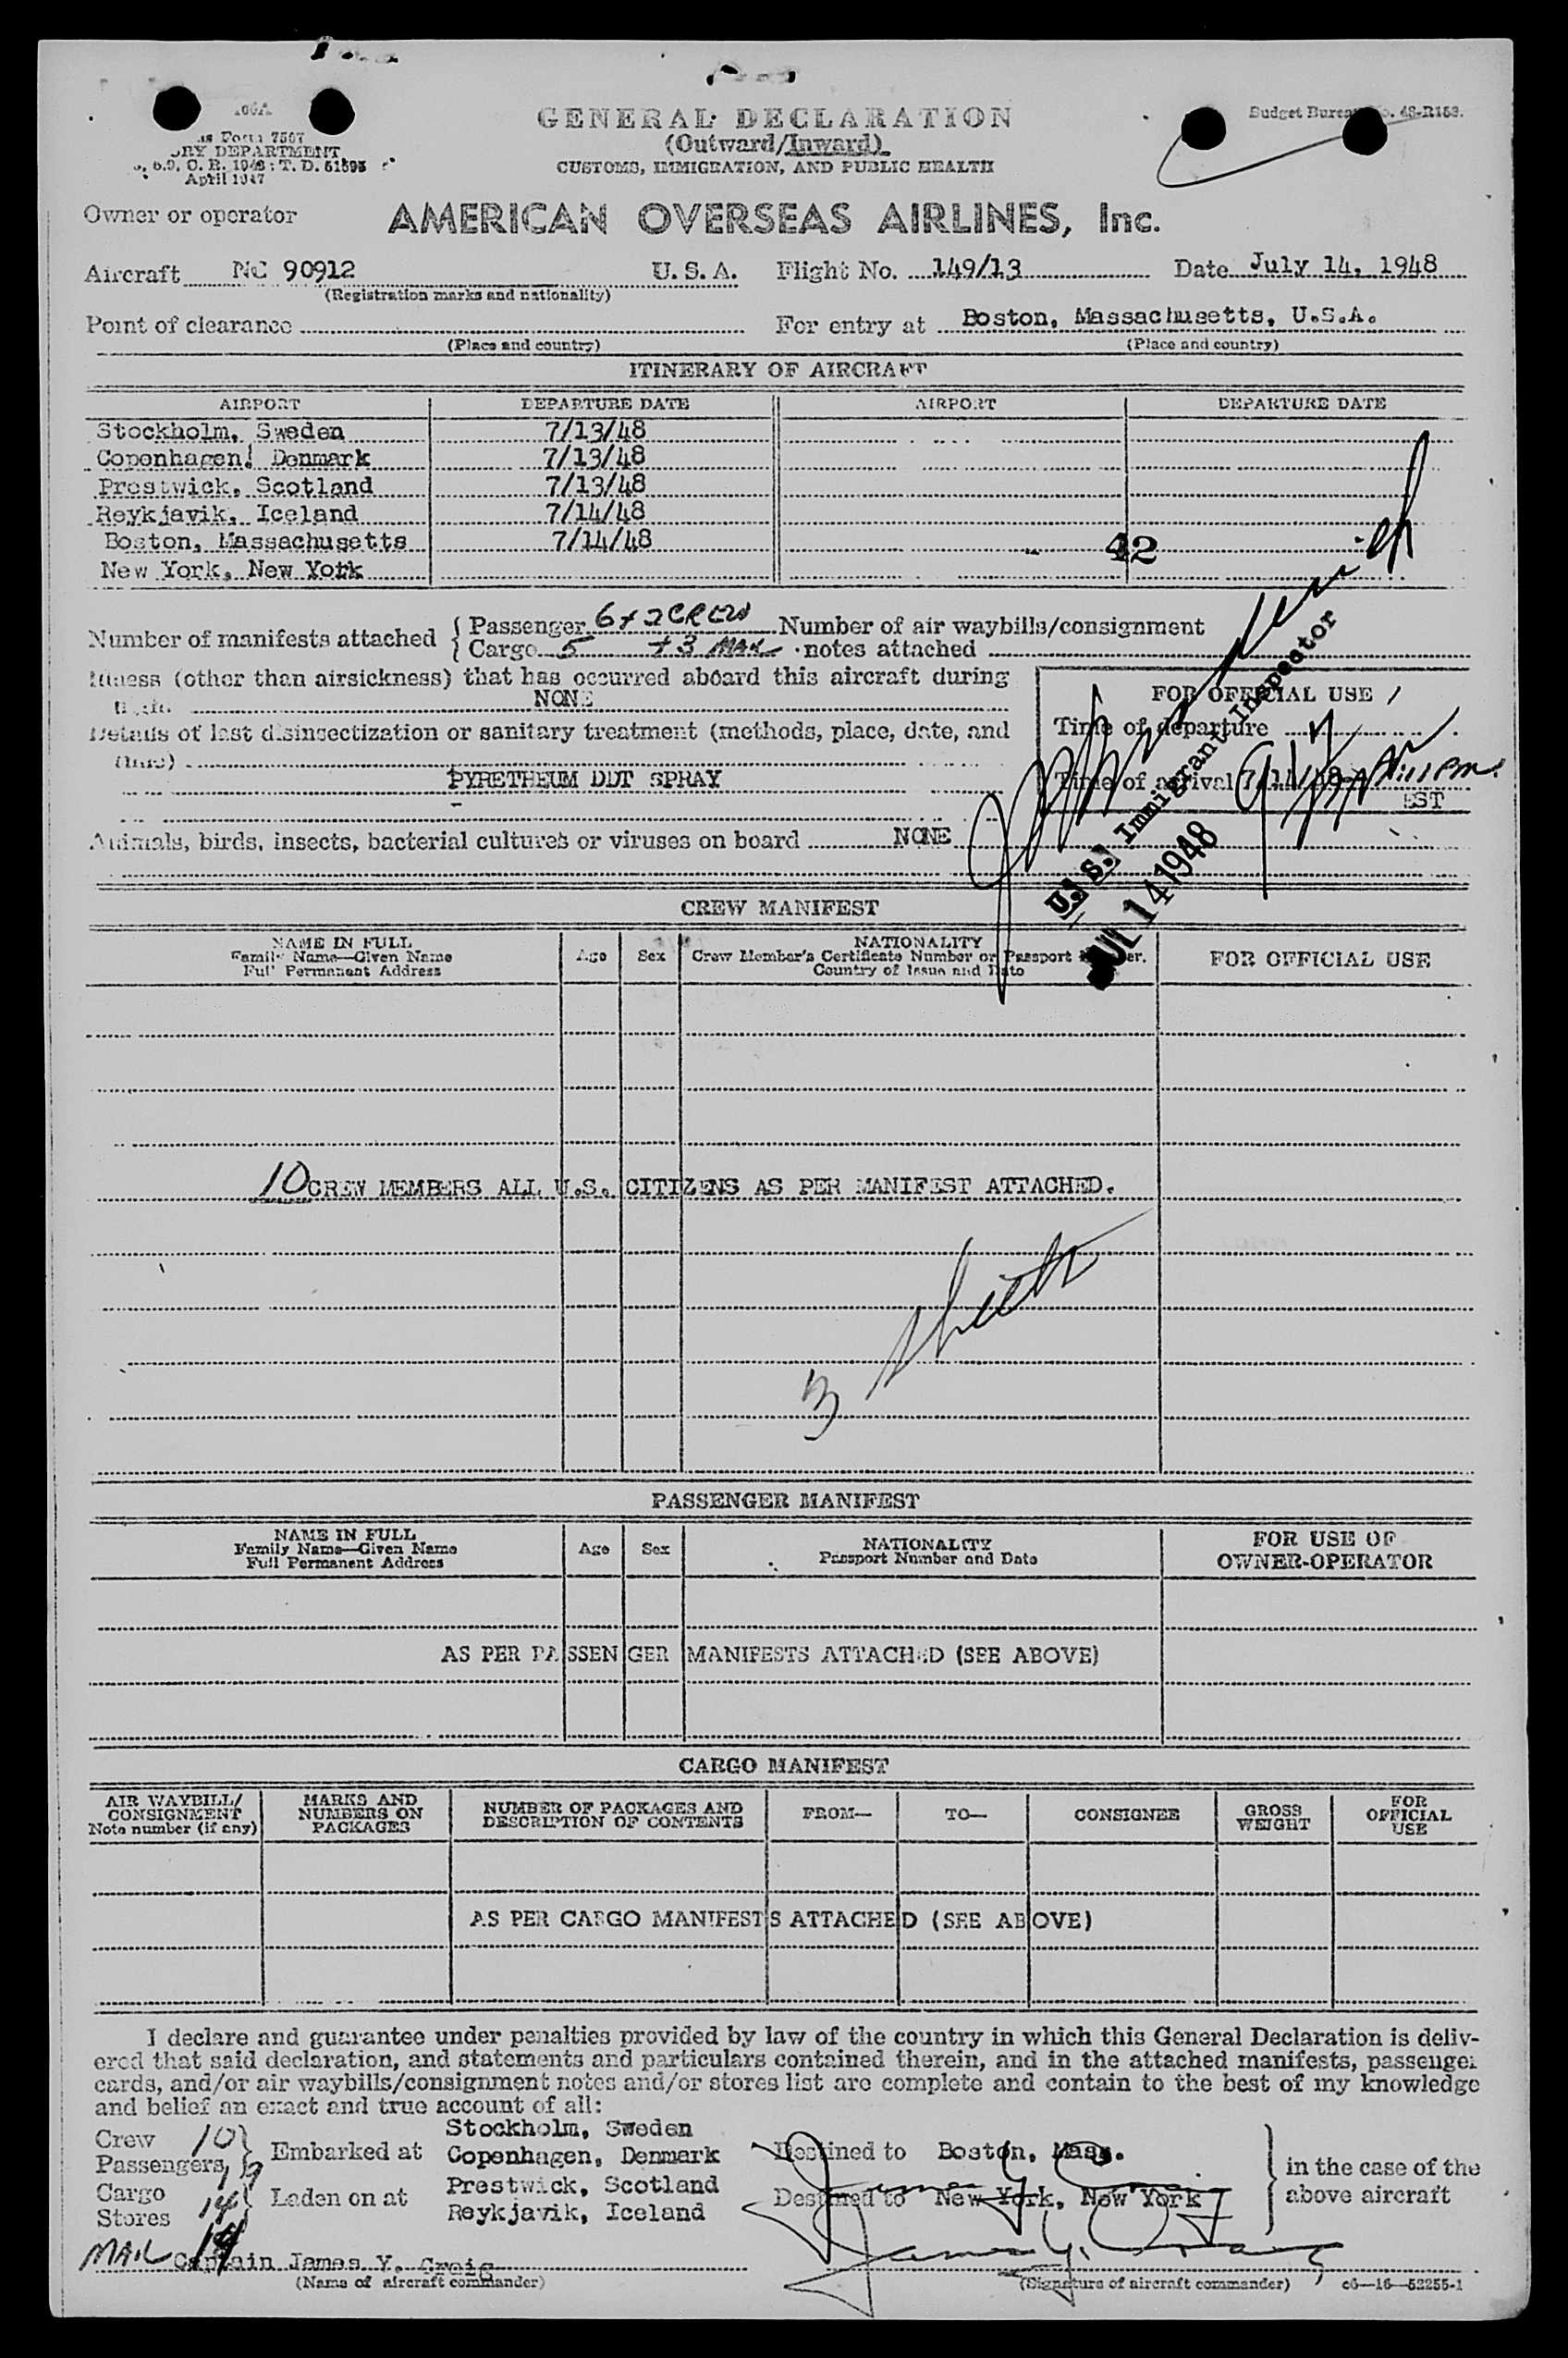 GENERAL DECLARATION
(Outward/Inward)
CUSTOMS, IMMIGRATION, AND PUBLIC HEALTH
Form 7507
DEPARTMENT
T. D. 51595
April 1947
Budget Bureau No. 48-R153.
Owner or operator AMERICAN OVERSEAS AIRLINES, Inc.
Aircraft NC 90912 U. S. A. Flight No. 149/13 Date July 14, 1948
(Registration marks and nationality)
Point of clearance For entry at Boston, Massachusetts, U.S.A.
(Place and country) (Place and country)
ITINERARY OF AIRCRAFT
AIRPORT DEPARTURE DATE AIRPORT DEPARTURE DATE
Stockholm, Sweden 7/13/48
Copenhagen, Denmark 7/13/48
Prestwick, Scotland 7/13/48
Reykjavik, Iceland 7/14/48
Boston, Massachusetts 7/14/48
42
New York, New York
Number of manifests attached { Passenger 6 + 2 CREW Number of air waybills/consignment
Cargo 5 + 3 MAIL notes attached
Illness (other than airsickness) that has occurred aboard this aircraft during
NONE
FOR OFFICIAL USE
Details of last disinsectization or sanitary treatment (methods, place, date, and
time)
Time of departure
PYRETHEUM DDT SPRAY
Time of arrival 7/14/48
EST
U. S. Immigrant Inspector
JUL 14 1948
Animals, birds, insects, bacterial cultures or viruses on board NONE
CREW MANIFEST
NAME IN FULL
Family Name—Given Name
Full Permanent Address
Age Sex
NATIONALITY
Crew Member's Certificate Number or Passport Number.
Country of Issue and Date
FOR OFFICIAL USE
10 CREW MEMBERS ALL U.S. CITIZENS AS PER MANIFEST ATTACHED.
3 sheets
PASSENGER MANIFEST
NAME IN FULL
Family Name—Given Name
Full Permanent Address
Age Sex
NATIONALITY
Passport Number and Date
FOR USE OF
OWNER-OPERATOR
AS PER PASSENGER MANIFESTS ATTACHED (SEE ABOVE)
CARGO MANIFEST
AIR WAYBILL/
CONSIGNMENT
Note number (if any)
MARKS AND
NUMBERS ON
PACKAGES
NUMBER OF PACKAGES AND
DESCRIPTION OF CONTENTS
FROM—
TO—
CONSIGNEE
GROSS
WEIGHT
FOR
OFFICIAL
USE
AS PER CARGO MANIFESTS ATTACHED (SEE ABOVE)
I declare and guarantee under penalties provided by law of the country in which this General Declaration is deliv-
ered that said declaration, and statements and particulars contained therein, and in the attached manifests, passenger
cards, and/or air waybills/consignment notes and/or stores list are complete and contain to the best of my knowledge
and belief an exact and true account of all:
Stockholm, Sweden
Crew 10 } Embarked at Copenhagen, Denmark Destined to Boston, Mass.
Passengers
in the case of the
Prestwick, Scotland
Cargo 14 } Laden on at Destined to New York, New York above aircraft
Stores
Reykjavik, Iceland
James Y. Craig
MAIL Captain James Y. Craig James Y. Craig
(Name of aircraft commander) (Signature of aircraft commander) c6—16—52255-1